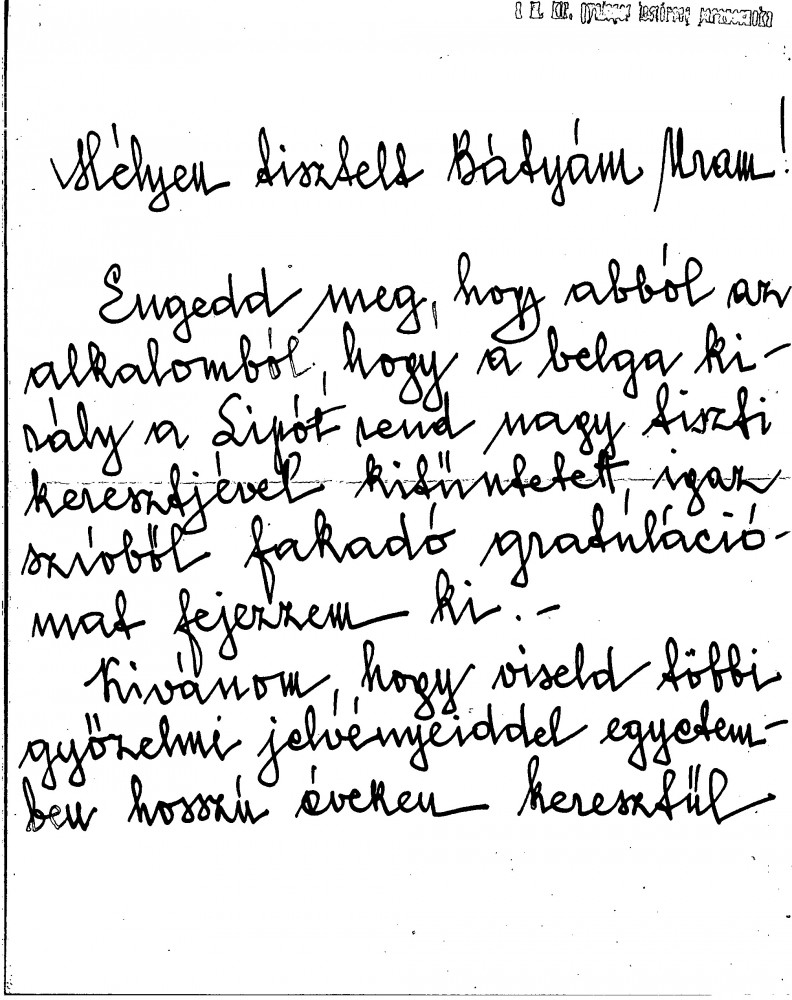 Mélyen tisztelt Bátyám Uram!
Engedd meg, hogy abból az
alkalomból, hogy a belga ki-
rály a Lipót rend nagy tiszti
keresztjével kitüntetett, igaz
szívből fakadó gratuláció-
mat fejezzem ki.-
Kívánom, hogy viseld többi
győzelmi jelvényeiddel egyetem-
ben hosszú éveken keresztül